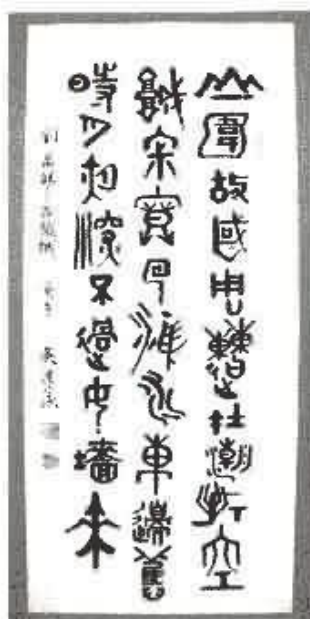 山圍故國周遭在潮打空
城寂寞回淮水東邊舊
時月夜深還過女牆來
劉禹錫 石頭城